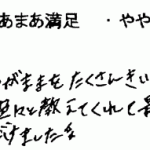 あまあ満足 ・やや
がままを たくさんきい
々と教えてくれて
ました